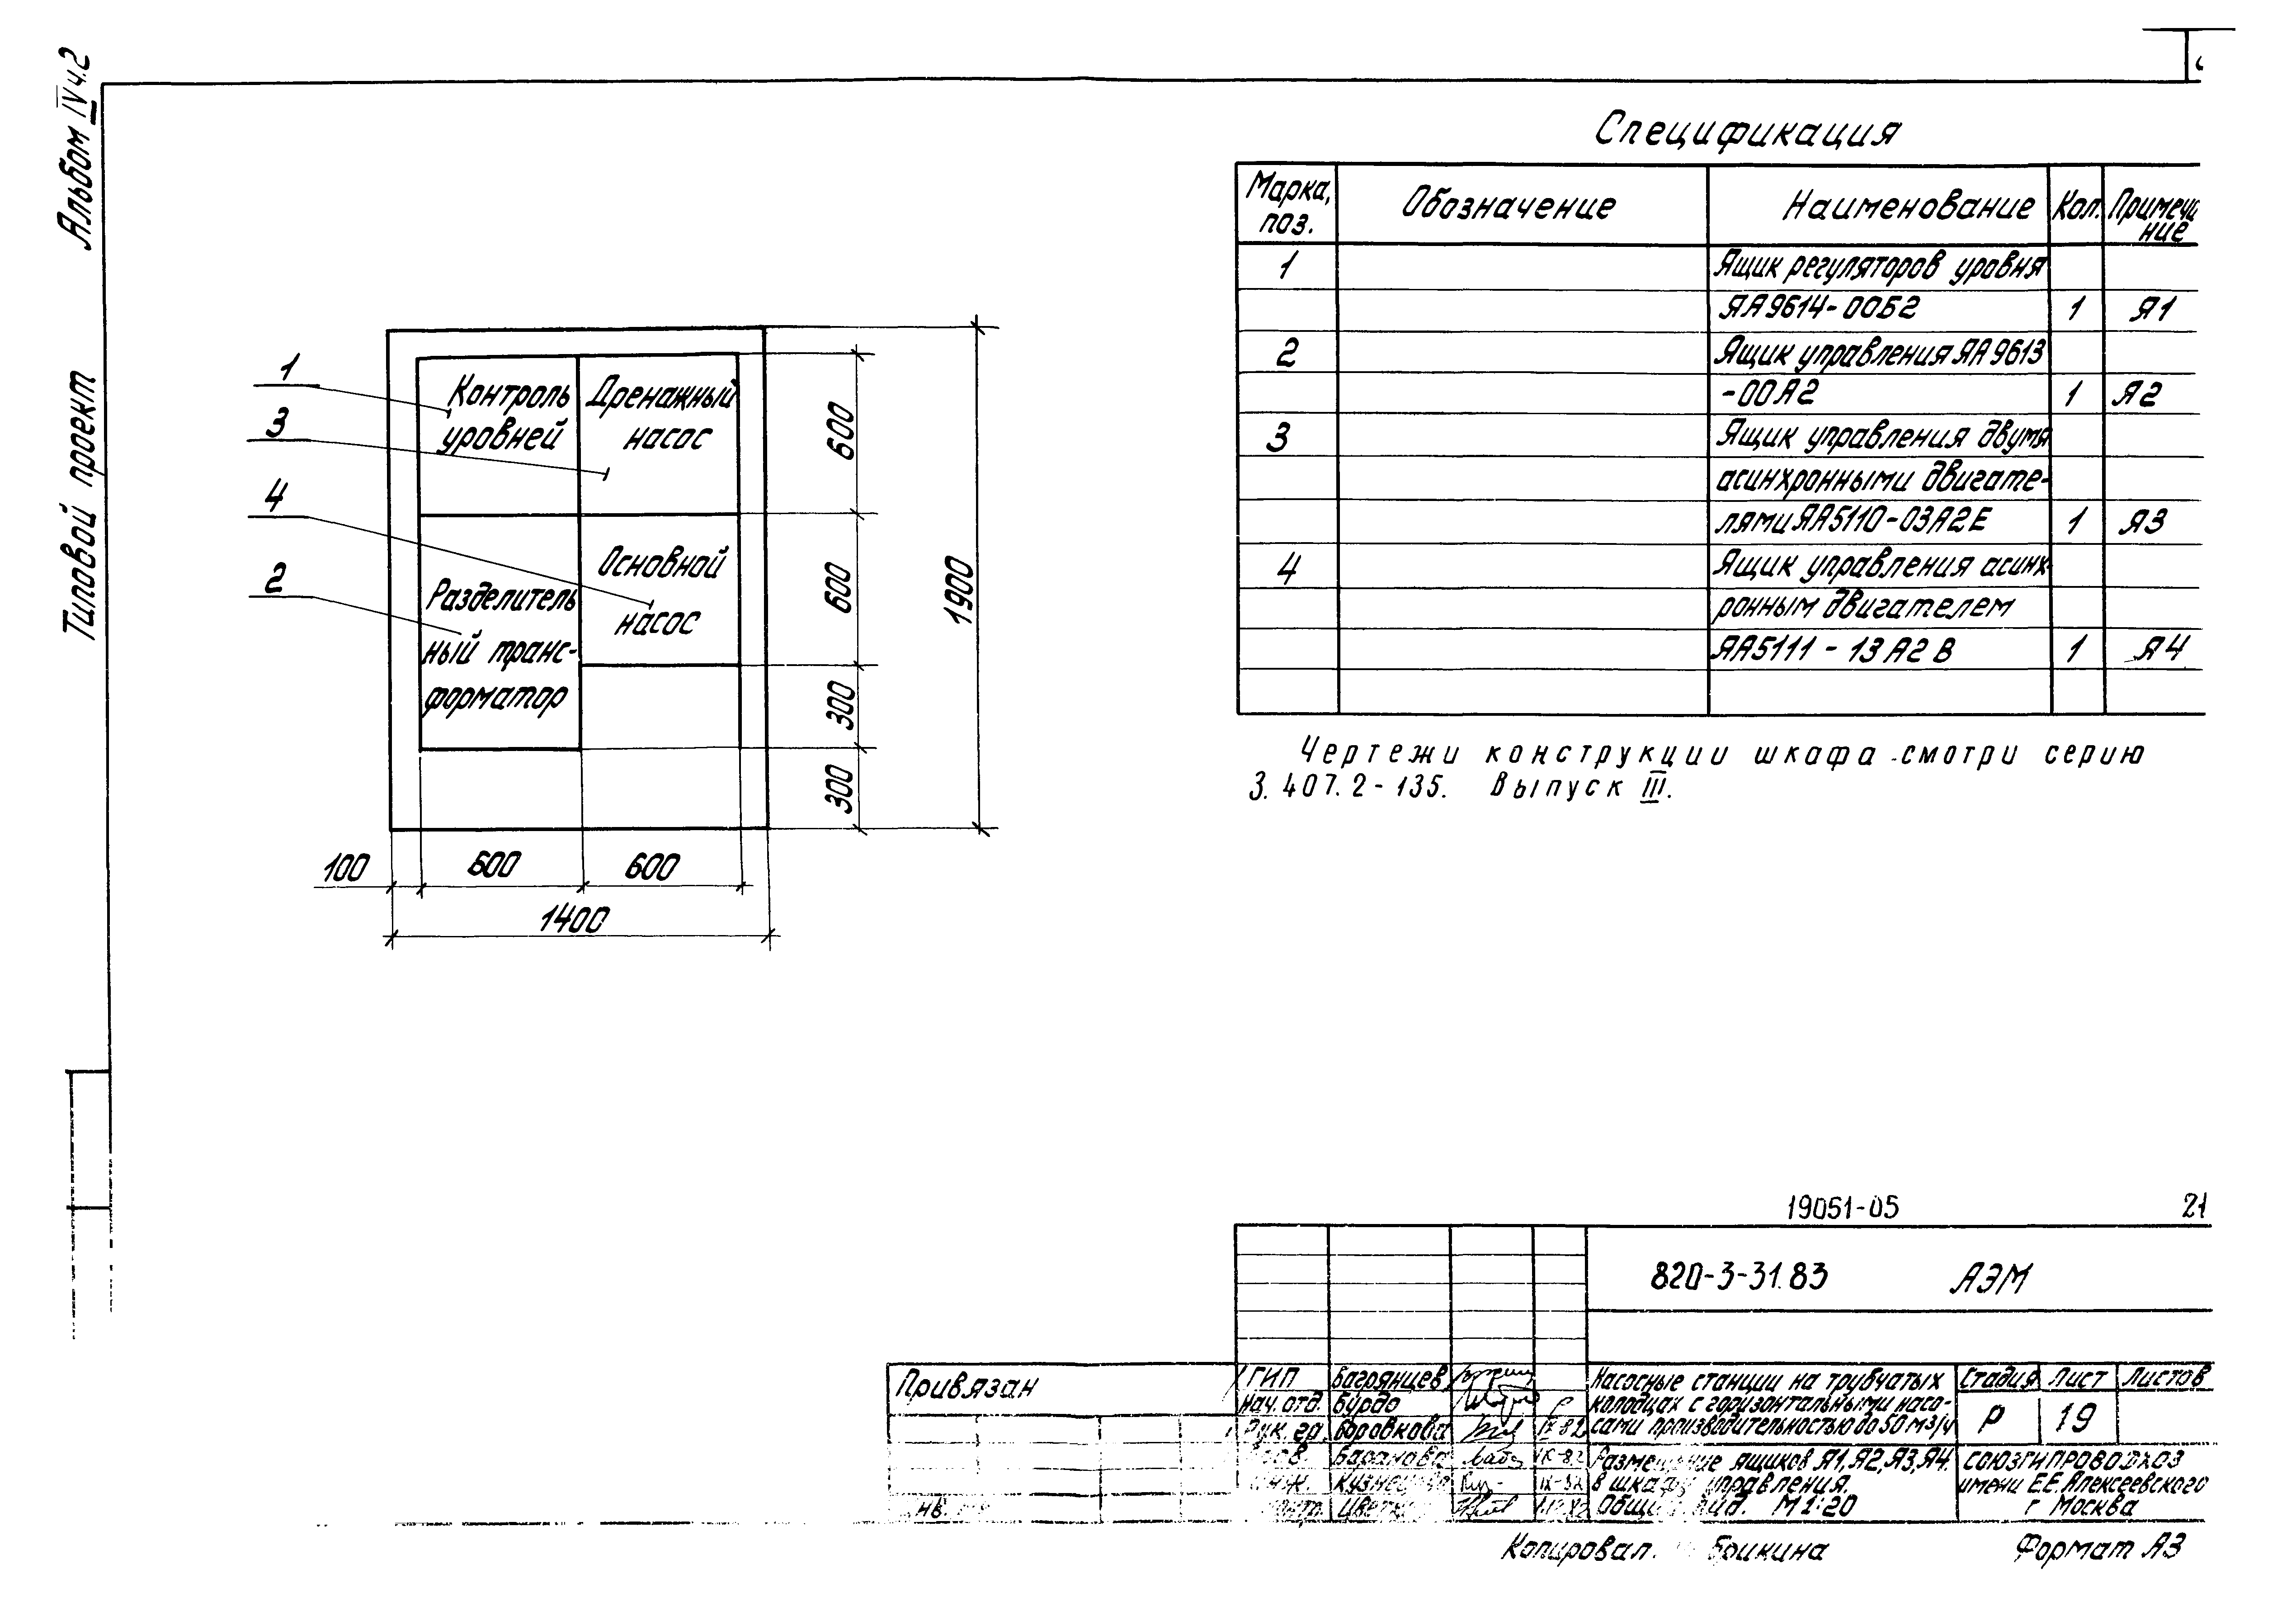 Альбом IV ч.2
Типовой проект
Спецификация
Марка, поз.
Обозначение
Наименование
Кол.
Примеча
ние
1
Ящик регуляторов уровня
ЯА9614-00Б2 1 Я1
2
Ящик управления ЯА9613
-00А2 1 Я2
3
Ящик управления двумя
асинхронными двигате-
лями ЯА5110-03А2Е 1 Я3
4
Ящик управления асинх-
ронным двигателем
ЯА5111-13А2В 1 Я4
Чертежи конструкции шкафа смотри серию
3.407.2-135. Выпуск III.
1
3
4
2
Контроль
уровней
Дренажный
насос
Основной
насос
Разделитель
ный транс-
форматор
600
600
300
300
1900
100
600
600
1400
19051-05 21
820-3-31.83 АЭМ
Привязан
ГИП Багрянцев
Нач. отд. Бурдо
Рук. гр. Боровкова IX-82
Баранова IX-82
IX-82
Насосные станции на трубчатых
колодцах с горизонтальными насо-
сами производительностью до 50 м3/ч
Стадия Лист Листов
Р 19
Размещение ящиков Я1, Я2, Я3, Я4.
в шкафу управления.
Общий вид. М 1:20
СОЮЗГИПРОВОДХОЗ
имени Е.Е. Алексеевского
г. Москва
Копировал. Брикина
Формат А3